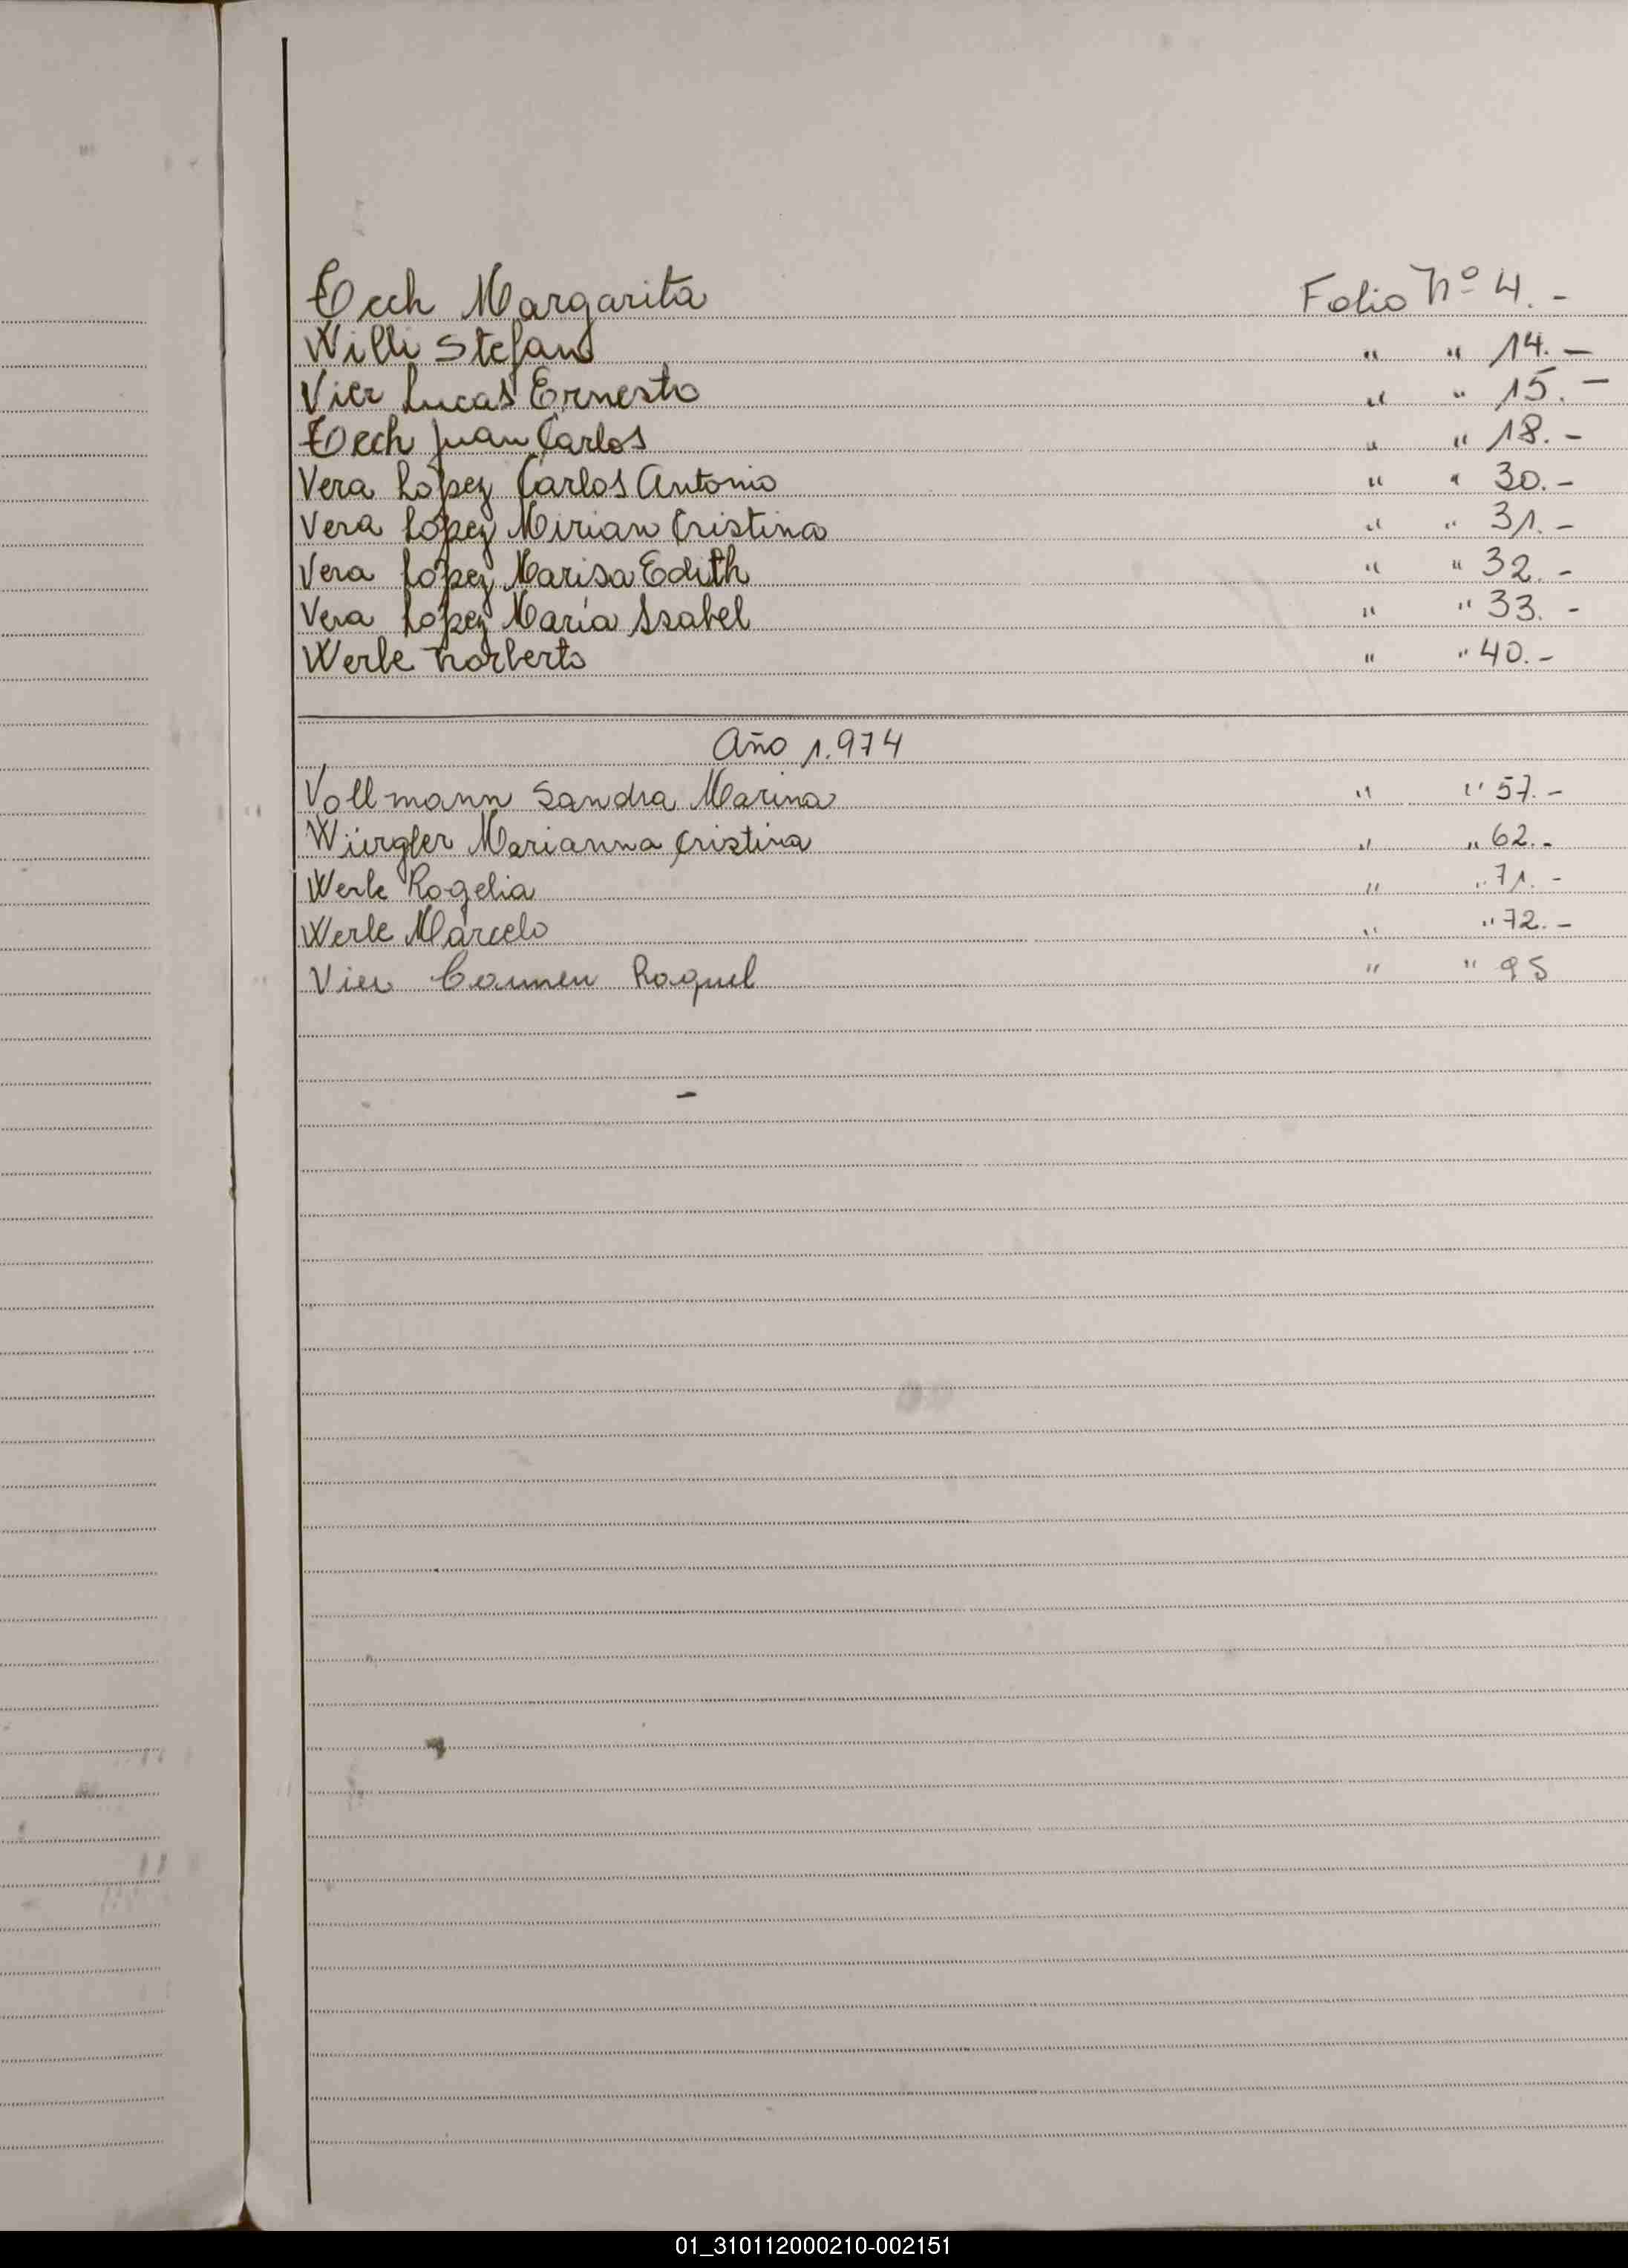 Margarita Folio Nº 4.-
Willi Stefan " " 14.-
Vier Lucas Ernesto " " 15.-
Juan Carlos " " 18.-
Vera López Carlos Antonio " " 30.-
Vera López Mirian Cristina " " 31.-
Vera López Marisa Edith " " 32.-
Vera López María Isabel " " 33.-
Werle Norberto " " 40.-
Año 1.974
Vollmann Sandra Marina " " 57.-
Würgler Marianna Cristina " " 62.-
Werle Rogelia " " 71.-
Werle Marcelo " " 72.-
Vier Carmen Raquel " " 95
01_310112000210-002151